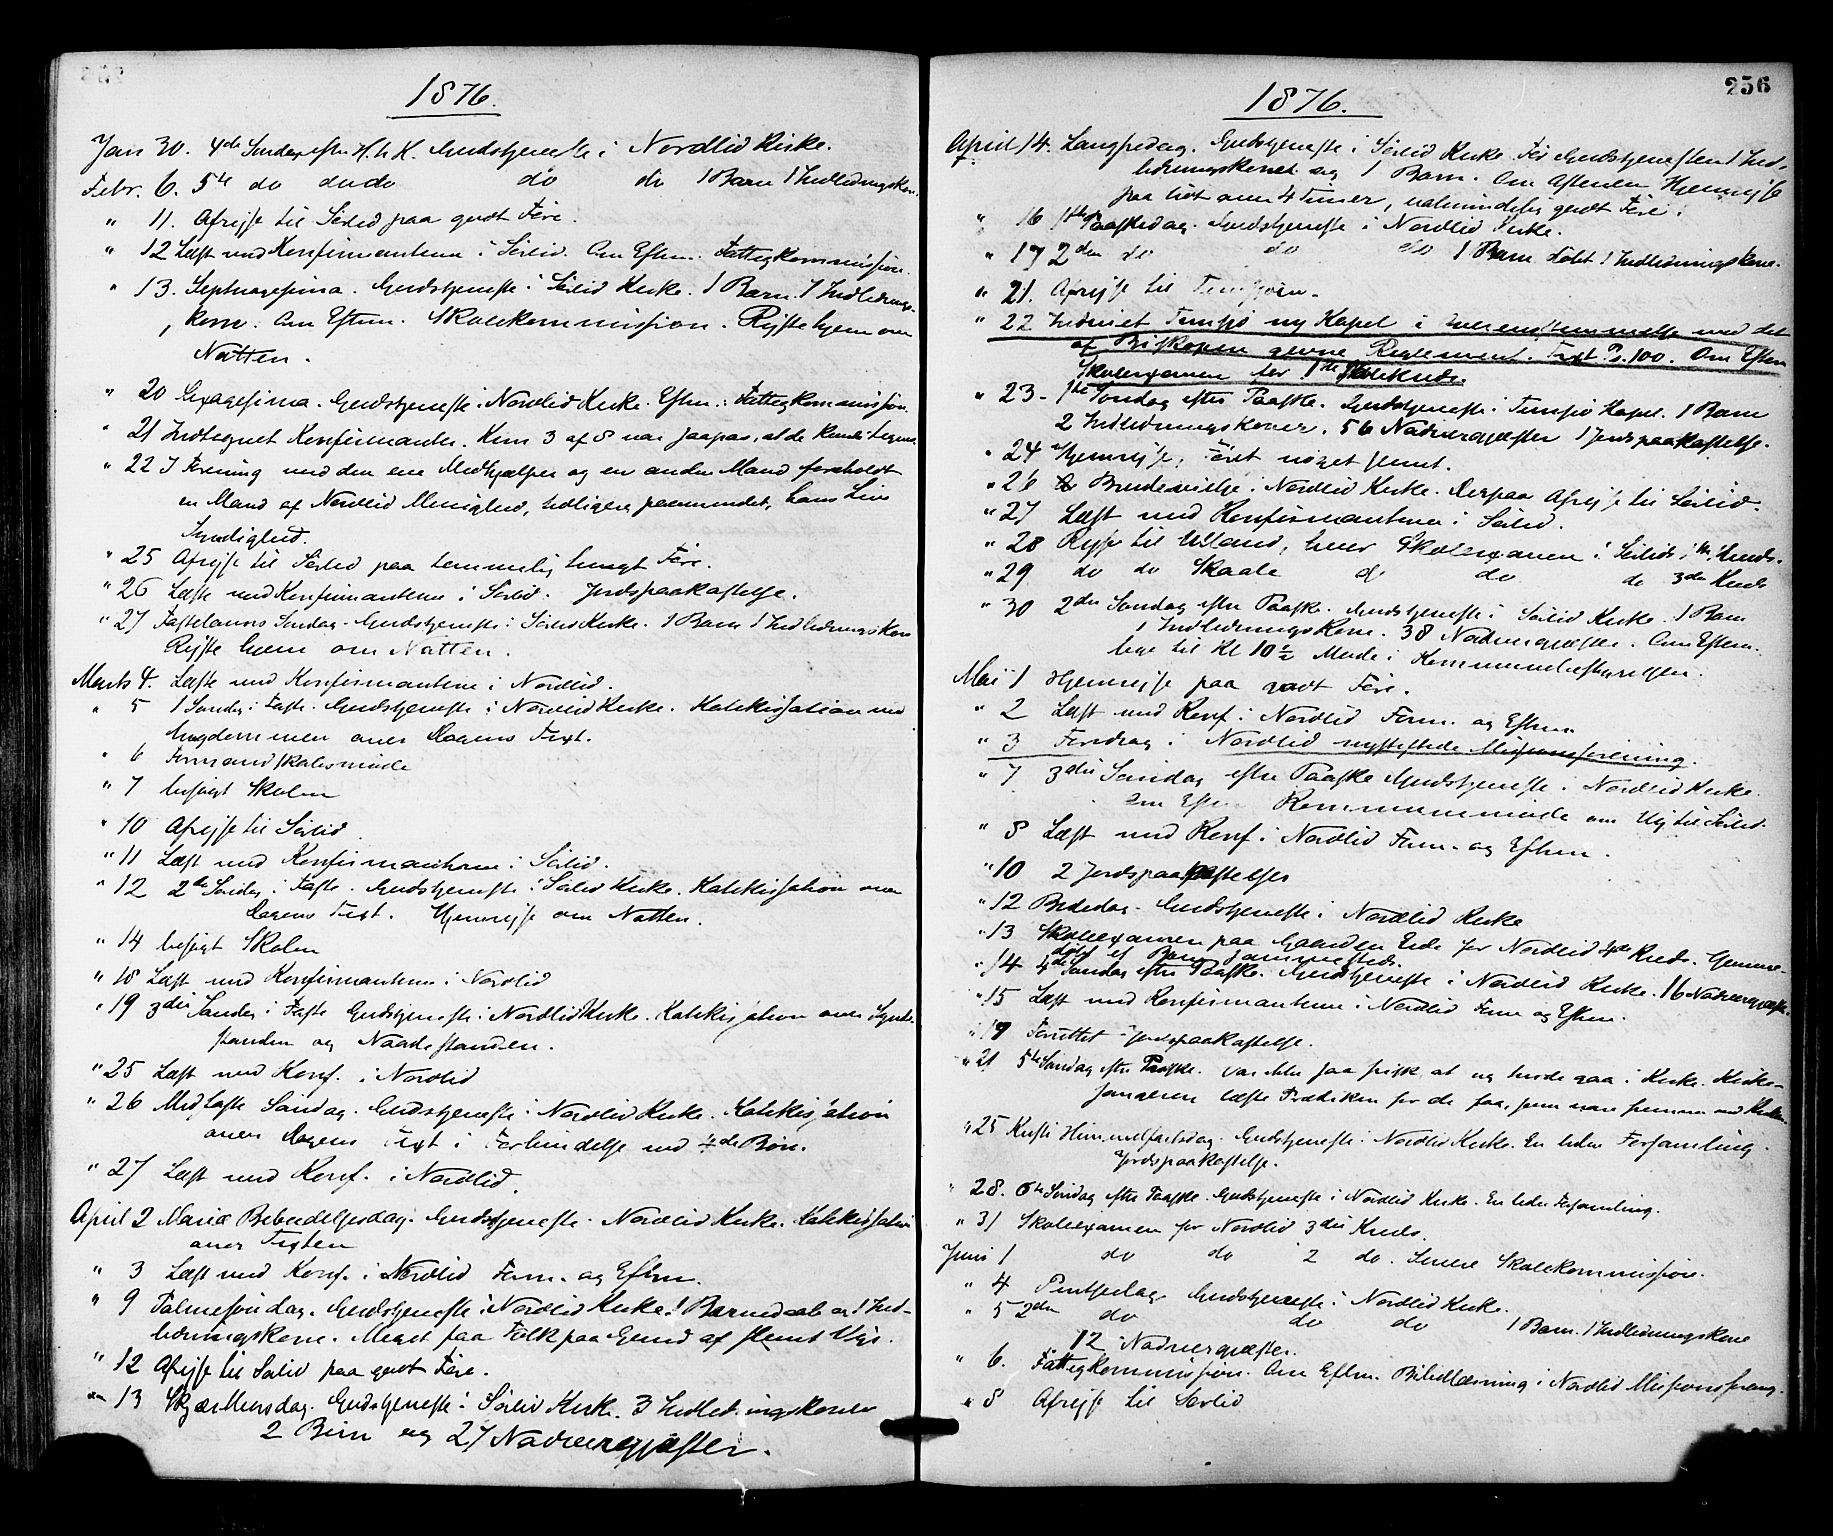 1876.
Jan 30. 4de Sndag efter H. h. K. Gudstjeneste i Nordlid Kirke.
Febr. 6. 5te do do do do do 1 Barn 1 Indledningskone.
" 11. Afrejse til Sørlid paa godt Føre.
" 12 Læst med Konfirmanterne i Sørlid. Om Efterm. Fattigkommission.
" 13. Septuagesima. Gudstjeneste i Sørlid Kirke. 1 Barn. 1 Indlednings-
kone. Om Efterm. Skolekommission. Rejste hjem om
Natten.
" 20 Sexagesima. Gudstjeneste i Nordlid Kirke. Efterm.: Fattigkommission.
" 21 Indtegnet Konfirmanter. Kun 3 af 8 var saapas, at de kunde tegnes.
" 22 I Forening med den ene Medhjælper og en anden Mand foreholdt
en Mand af Nordlid Menighed, tidligere paamindet, hans Livs
Syndighed.
" 25 Afrejse til Sørlid paa temmelig tungt Føre.
" 26 Læste med Konfirmanterne i Sørlid. Jordspaakastelse.
" 27 Fastelavns Søndag. Gudstjeneste i Sørlid Kirke. 1 Barn 1 Indledningskone
Rejste hjem om Natten.
Marts 4. Læste med Konfirmanterne i Nordlid.
" 5 1 Søndag i Faste. Gudstjeneste i Nordlid Kirke. Katekisation med
Ungdommen over Dagens Text.
" 6 Formandskabsmøde
" 7 besøgt Skolen
" 10 Afrejse til Sørlid
" 11 Læst med Konfirmanterne i Sørlid.
" 12 2den Søndag i Faste. Gudstjeneste i Sørlid Kirke. Katekisation over
Dagens Text. Hjemrejse om Natten.
" 14 besøgt Skolen
" 18 Læst med Konfirmanterne i Nordlid
" 19 3die Søndag i Faste Gudstjeneste i Nordlid Kirke. Katekisation over Synde-
standen og Naadestanden.
" 25 Læst med Konf. i Nordlid
" 26 Midfaste Søndag. Gudstjeneste i Nordlid Kirke. Katekisation
over Dagens Text i Forbindelse med 4de Bøn.
" 27 Læst med Konf. i Nordlid.
April 2 Mariæ Bebudelsesdag. Gudstjeneste. Nordlid Kirke. Katekisation
over Texten
" 3 Læst med Konf. i Nordlid Form. og Efterm.
" 9 Palmesøndag. Gudstjeneste i Nordlid Kirke. 1 Barnedaab og 1 Ind-
ledningskone. Meget faa Folk paa Grund af slemt Vejr.
" 12 Afrejse til Sørlid paa godt Føre.
" 13 Skjærthorsdag. Gudstjeneste i Sørlid Kirke. 3 Indledningskoner
2 Børn og 27 Nadvergjæster.
256
1876.
April 14. Langfredag. Gudstjeneste i Sørlid Kirke. Før Gudstjenesten 1 Ind-
ledningskone og 1 Barn. Om Aftenen Hjemrejse
paa lidt over 4 Timer, ualmindelig godt Føre.
" 16 1ste Paaskedag. Gudstjeneste i Nordlid Kirke.
" 17 2den do do do 1 Barn døbt 1 Indledningskone.
" 21. Afrejse til Tunsjøen.
" 22 Indviet Tunsjø ny Kapel i Overensstemmelse med det
af Biskopen givne Reglement. Text Ps. 100. Om Efterm
Skolexamen for 1ste Skolekreds.
" 23. 1ste Søndag efter Paaske. Gudstjeneste i Tunsjø Kapel. 1 Barn
2 Indledningskoner. 56 Nadvergjæster 1 Jordspaakastelse.
" 24 Hjemrejse, Føret noget slemt.
" 26 Brudevielse i Nordlid Kirke. Derpaa Afrejse til Sørlid.
" 27 Læst med Konfirmanterne i Sørlid.
" 28 Rejse til Ulland, hvor Skolexamen i Sørlids 1ste Kreds.
" 29 do do Skaale do do do 3die Kreds
" 30 2den Søndag efter Paaske. Gudstjeneste i Sørlid Kirke. 1 Barn
1 Indledningskone. 38 Nadvergjæster. Om Efterm.
lige til Kl 10 1/2 Møde i Kommunebestyrelsen.
Mai 1 Hjemrejse paa godt Føre.
" 2 Læst med Konf. i Nordlid Form. og Efterm
" 3 Foredrag i Nordlid nystiftede Missionsforening.
" 7 3die Søndag efter Paaske Gudstjeneste i Nordlid Kirke.
Om Efterm Kommunemøde om Vej til Sørlid.
" 8 Læst med Konf. i Nordlid Form. og Efterm.
" 10 2 Jordspaakastelser
" 12 Bededag. Gudstjeneste i Nordlid Kirke
" 13 Skolexamen paa Gaarden Lide for Nordlid 4de Kreds. Hjemme-
døbt et Barn sammesteds.
" 14 4de Søndag efter Paaske. Gudstjeneste i Nordlid Kirke. 16 Nadvergjæster.
" 15 Læst med Konfirmanterne i Nordlid Form og Efterm.
" 19 Forrettet Jordspaakastelse.
" 21 5te Søndag efter Paaske. Var ikke saa frisk at jeg turde gaa i Kirke. Kirke-
sangeren læste Prædiken for de faa, som vare fremme ved Kirken.
" 25 Kristi Himmelfartsdag. Gudstjeneste i Nordlid Kirke. En liden Forsamling.
Jordspaakastelse.
" 28. 6te Søndag efter Paaske. Gudstjeneste i Nordlid Kirke. En liden Forsamling.
" 31 Skolexamen for Nordlid 3die Kreds.
Juni 1 do do 2 do. Senere Skolekommission.
" 4 Pintsedag Gudstjeneste i Nordlid Kirke.
" 5 2den do do do 1 Barn. 1 Indledningskone
12 Nadvergjæster.
" 6. Fattigkommission. Om Efterm. Bibellæsning i Nordlid Missionsforening.
" 8 Afrejse til Sørlid